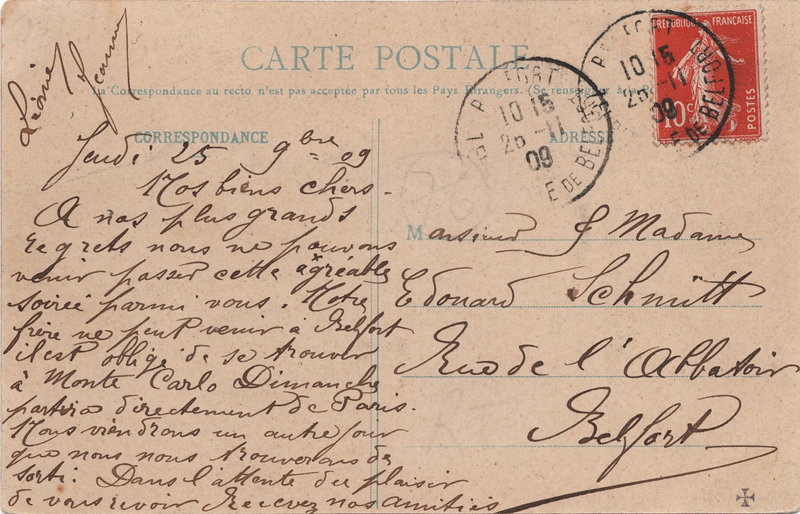 CARTE POSTALE
La Correspondance au recto n'est pas acceptée par tous les Pays Étrangers. (Se renseigner à
CORRESPONDANCE
ADRESSE
RÉPUBLIQUE FRANÇAISE
10 c
POSTES
BELFORT
10 15
26 -11
09
TE DE BELFORT
BELFORT
10 15
26 -11
09
TE DE BELFORT
Léonie Jeanne
Jeudi 25 9bre 09
Nos biens chers.
A nos plus grands
regrets nous ne pouvons
venir passer cette agréable
soirée parmi vous. Notre
frère ne peut venir à Belfort
il est obligé de se trouver
à Monte Carlo Dimanche
partira directement de Paris.
Nous viendrons un autre jour
que nous nous trouverons de
sorti. Dans l'attente du plaisir
de vous revoir Recevez nos amitiés
Monsieur & Madame
Edouard Schmitt
Rue de l'Abbatoir
Belfort